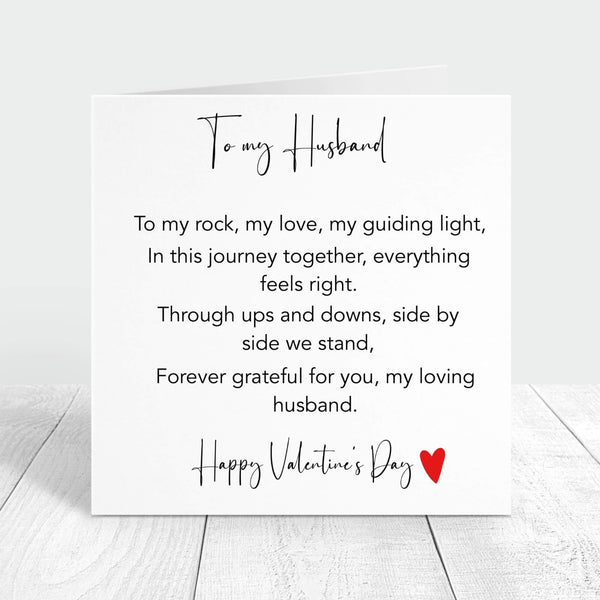 To my Husband
To my rock, my love, my guiding light,
In this journey together, everything
feels right.
Through ups and downs, side by
side we stand,
Forever grateful for you, my loving
husband.
Happy Valentine's Day